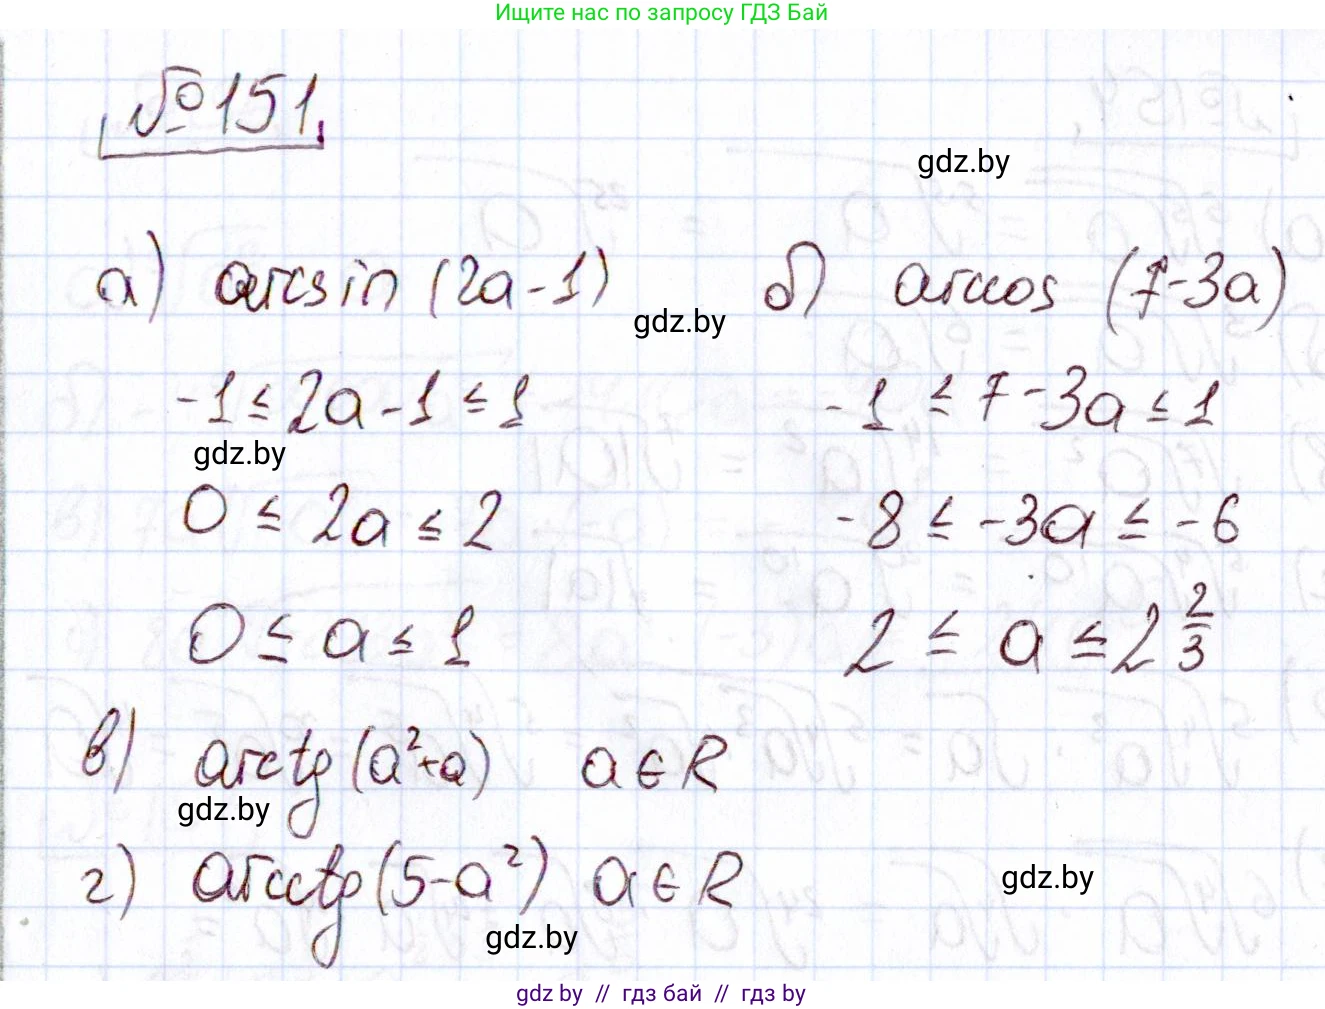 Ищите нас по запросу ГДЗ Бай
№151.
gdz.by
а) arcsin (2a-1)
б) arccos (7-3a)
gdz.by
-1 ≤ 2a-1 ≤ 1
-1 ≤ 7-3a ≤ 1
gdz.by
0 ≤ 2a ≤ 2
-8 ≤ -3a ≤ -6
0 ≤ a ≤ 1
2 ≤ a ≤ 2 2/3
в) arctg (a²+a) a ∈ R
gdz.by
г) arcctg (5-a²) a ∈ R
gdz.by
gdz.by
gdz by // гдз бай // гдз by